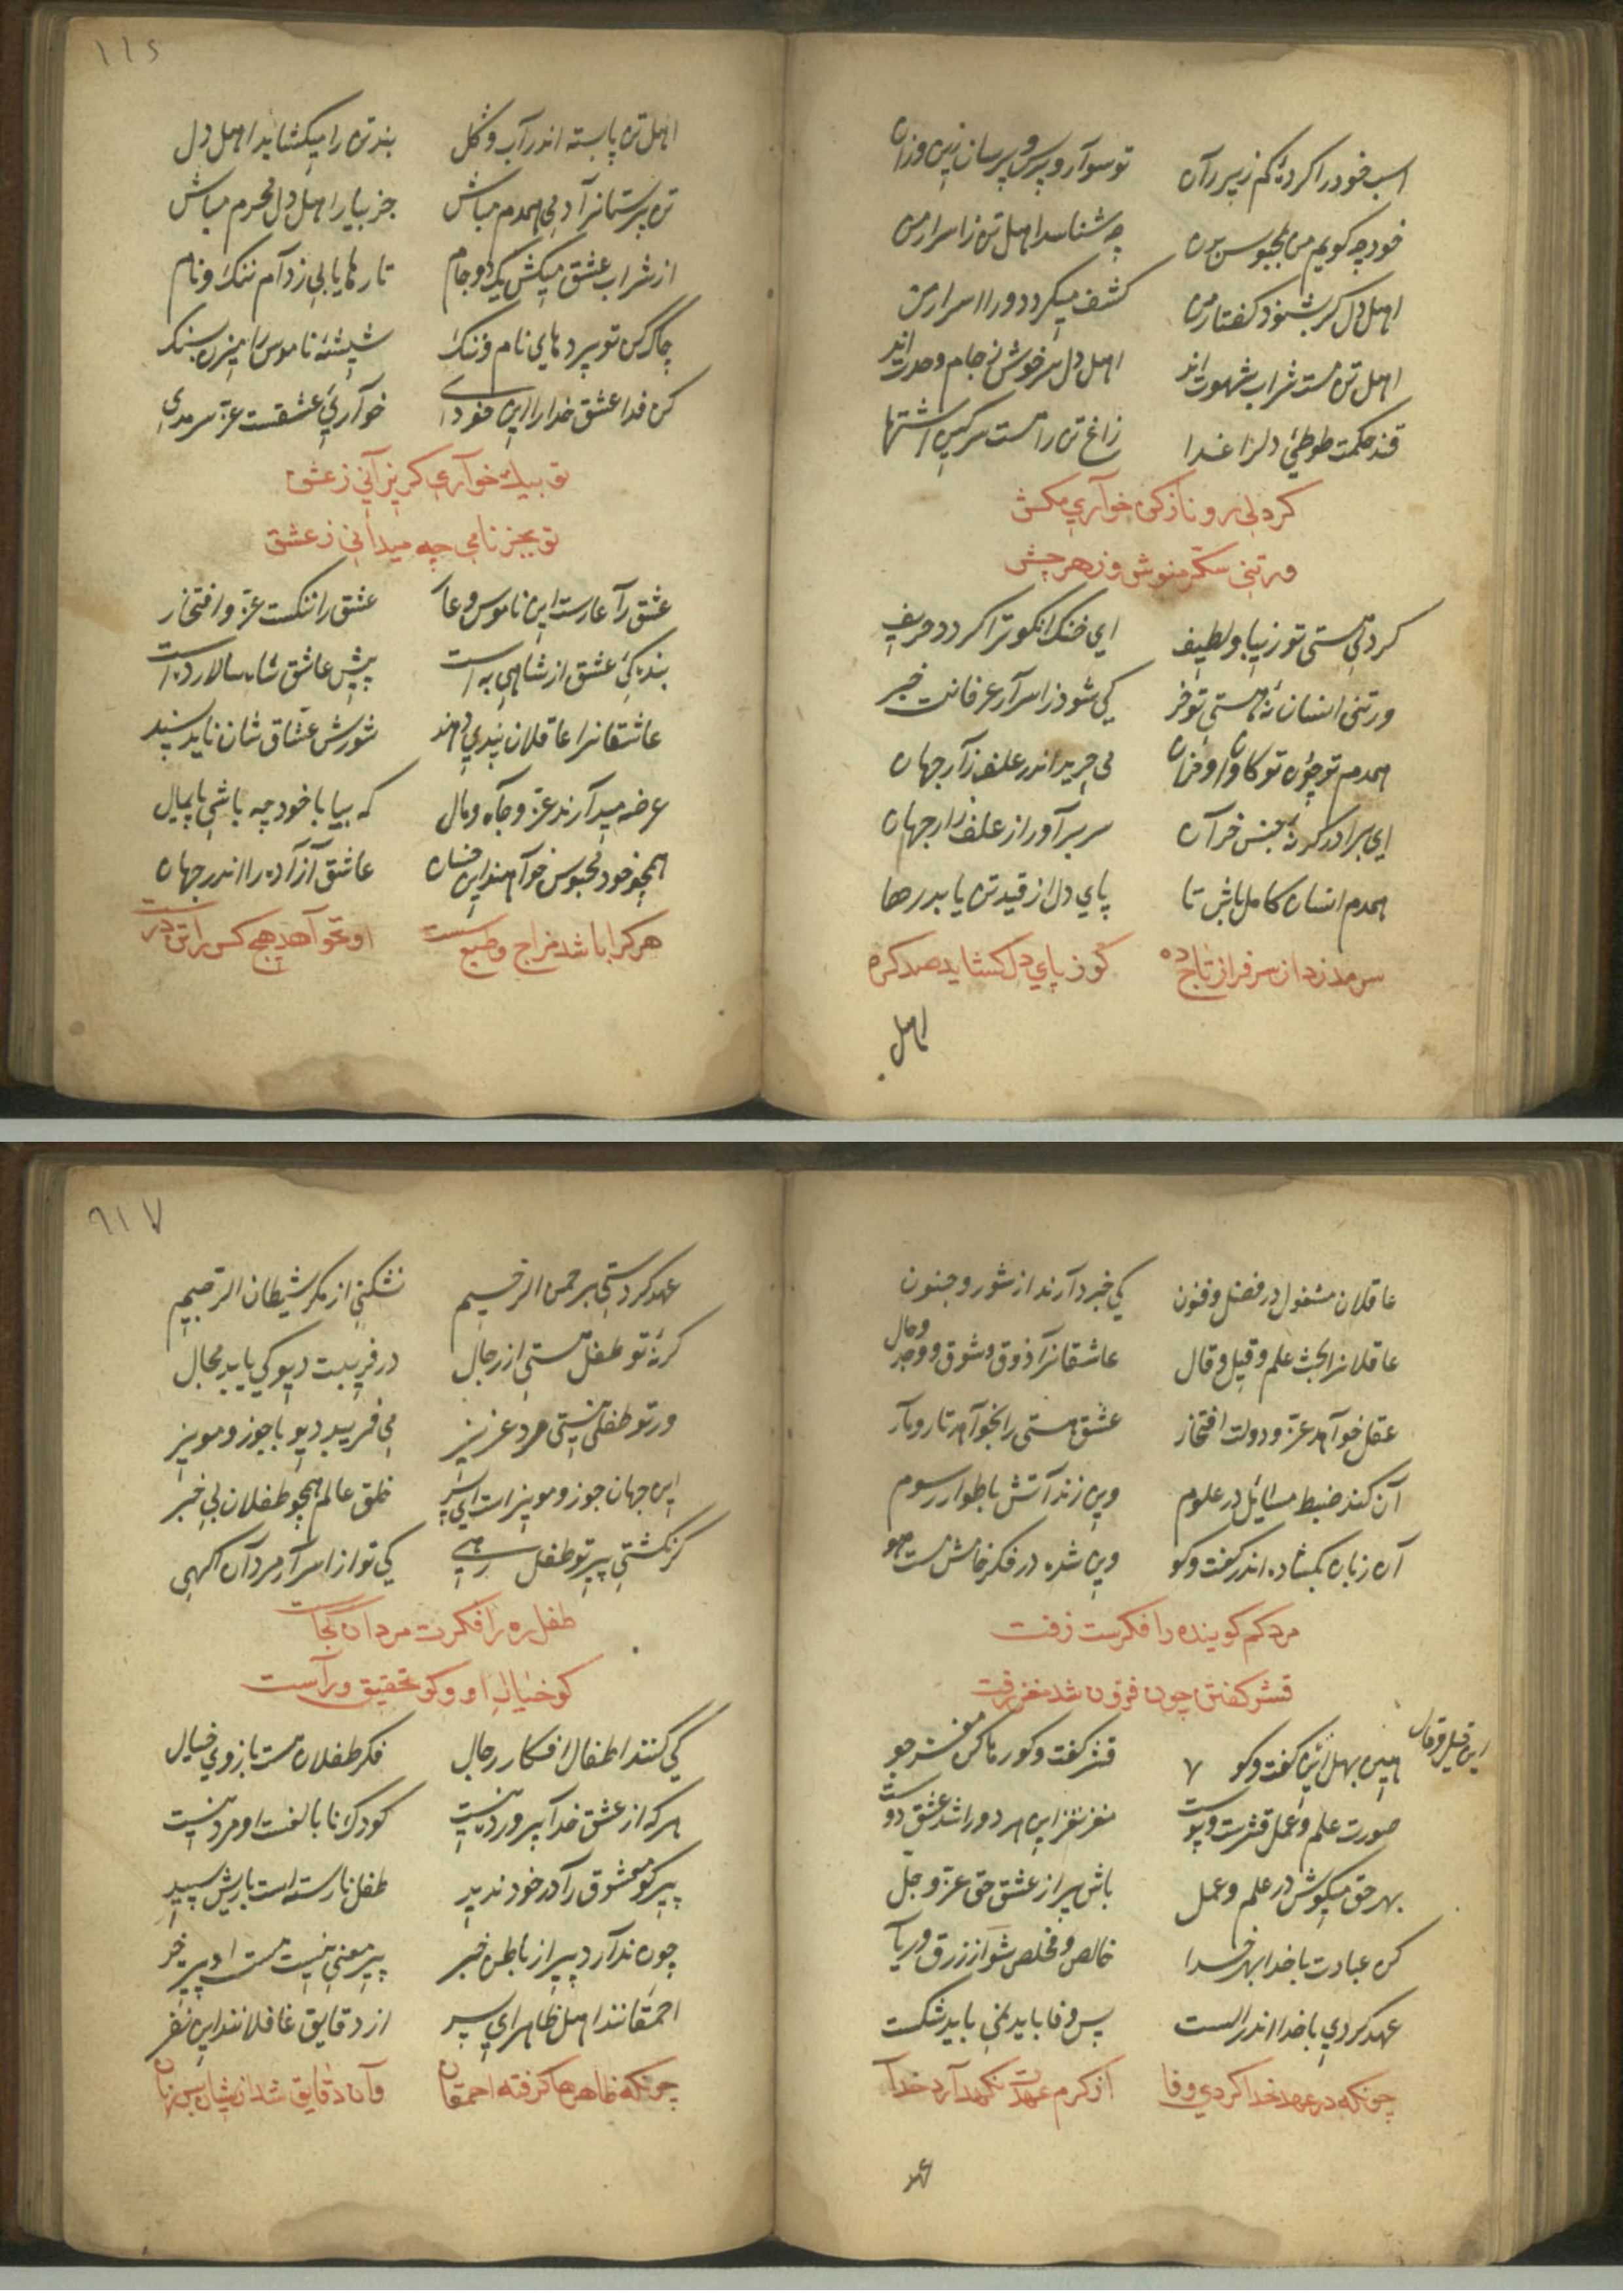 اسب خود را کردهٔ کم زیر ران تو سوار و پرس پرسان زین و زان
خود چه کویم من بمحبوسن بدن چه شناسد اهل تن زاسرار من
اهل دل کر بشنود کفتار من کشف میکردد ورا اسرار من
اهل تن مست شراب شهوت اند اهل دل سرخوش ز جام وحدت اند
قند حکمت طوطیٔ دلرا غدا زاغ تن را هست سرکین اشتها
کر دلی رو نازکن خوآری مکش
ور تنی سکّر منوش و زهر چش
کر دلی هستی تو زیبا و لطیف ای خنک انکو ترا کردد حریف
ور تنی انسان نهٔ هستی تو خر کی شود ز اسرار عرفانت خبر
همدم تو چون تو کاوان و خران می چرید اندر علف زآر جهان
ای برادر کر نهٔ جنس خرآن سر برآور از علف زار جهان
همدم انسان کامل باش تا پای دل از قید تن یابد رها
سرمد زد از سرفراز تاج ده کو ز پای دل کشاید صد کره
اهل
١١٤
اهل تن پابسته اندر آب و کل بند تن را میکشاید اهل دل
تن پرستانرا دمی همدم مباش جز بیار اهل دل محرم مباش
از شراب عشق میکش یک دو جام تا رها یابی ز دآم ننک و نام
چاک کن تو پردهای نام و ننک شیشهٔ ناموس را میزن بسنک
کن فدا عشق خدا را این خودی خوآریٔ عشقست عزّ سرمدی
تو بیک خوآری کریزآنی ز عشق
تو بجز نامی چه میدانی ز عشق
عشق رآ عارست این ناموس و عار عشق را ننکست عزّ و افتخار
بندهٔ عشق از شاهی به است پیش عاشق شاه سالار ده است
عاشقانرا عاقلان پندی دهند شورش عشّاق شان ناید پسند
عرضه میدآرند عزّ و جآه و مال که بیا با خود چه باشی پایمال
همچو خود محبوس خوآهند این خسان عاشق آزآده را اندر جهان
هر کرا باشد مزاج و طبع سست او نخوآهد هیچ کس را تن درست
عاقلان مشغول در فضل و فنون کی خبر دآرند از شور و جنون
عاقلانرا بحث علم و قیل و قال عاشقانرآ ذوق و شوق و وجد و حال
عقل خوآهد عزّ و دولت افتخار عشق هستی را بخوآهد تار و مآر
آن کند ضبط مسائیل در علوم وین زند آتش باطوار رسوم
آن زبان بکشاده اندر کفت و کو وین شده در فکر خامش مست هو
مرد کم کوینده را فکرست زفت
قشر کفتن چون فزون شد مغز رفت
هین بهل این کفت و کو ٧ قند کفت و کو رها کن مغز جو
این قیل و قال
صورت علم و عمل قشرست و پوست مغز نغز این هر دو را شد عشق دوست
بهر حق میکوش در علم و عمل باش پر از عشق حق عزّ و جلّ
کن عبادت با خدا بهر خدا خالص و مخلص شو از زرق و ریآ
عهد کردی با خدا اندر الست پس وفا باید نمی باید شکست
چونکه در عهد خدا کردی وفا از کرم عهدت نکهدآرد خدآ
عهد
٩١٧
عهد کردستی برحمن الرحیم نشکنی از مکر شیطان الرجیم
کر نهٔ تو طفل هستی از رجال در فریبت دیو کی یابد مجال
ور تو طفلی نیستی مرد عزیز می فریبد دیو با جوز و مویز
این جهان جوز و مویزات ای پسر خلق عالم همچو طفلان بی خبر
کر نکشتی پیر تو طفل رهی کی تو از اسرآر مردآن آکهی
طفل ره را فکرت مردان کجاست
کو خیال او و کو تحقیق راست
کی کنند اطفال افکار رجال فکر طفلان هست بازوی خیال
هر که از عشق خدا پر ورد نیست کودک نابالغست او مرد نیست
پیر کو معشوق را در خود ندید طفل نارسته است با ریش سپید
چون ندآرد پیر از باطن خبر پیر معنی نیست هست او پیر خر
احمقانند اهل ظاهر ای پسر از دقایق غافلانند این نفر
چونکه ظاهرها کرفته احمقان وآن دقایق شد ازیشان بس نهان